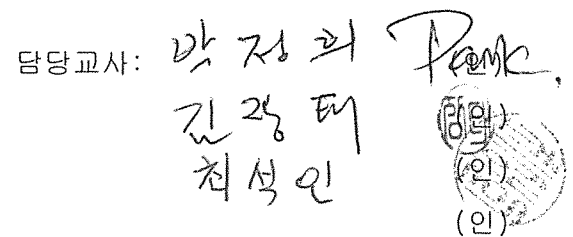 담당교사: 박정희 (인)
김광태 (인)
최석인 (인)
(인)